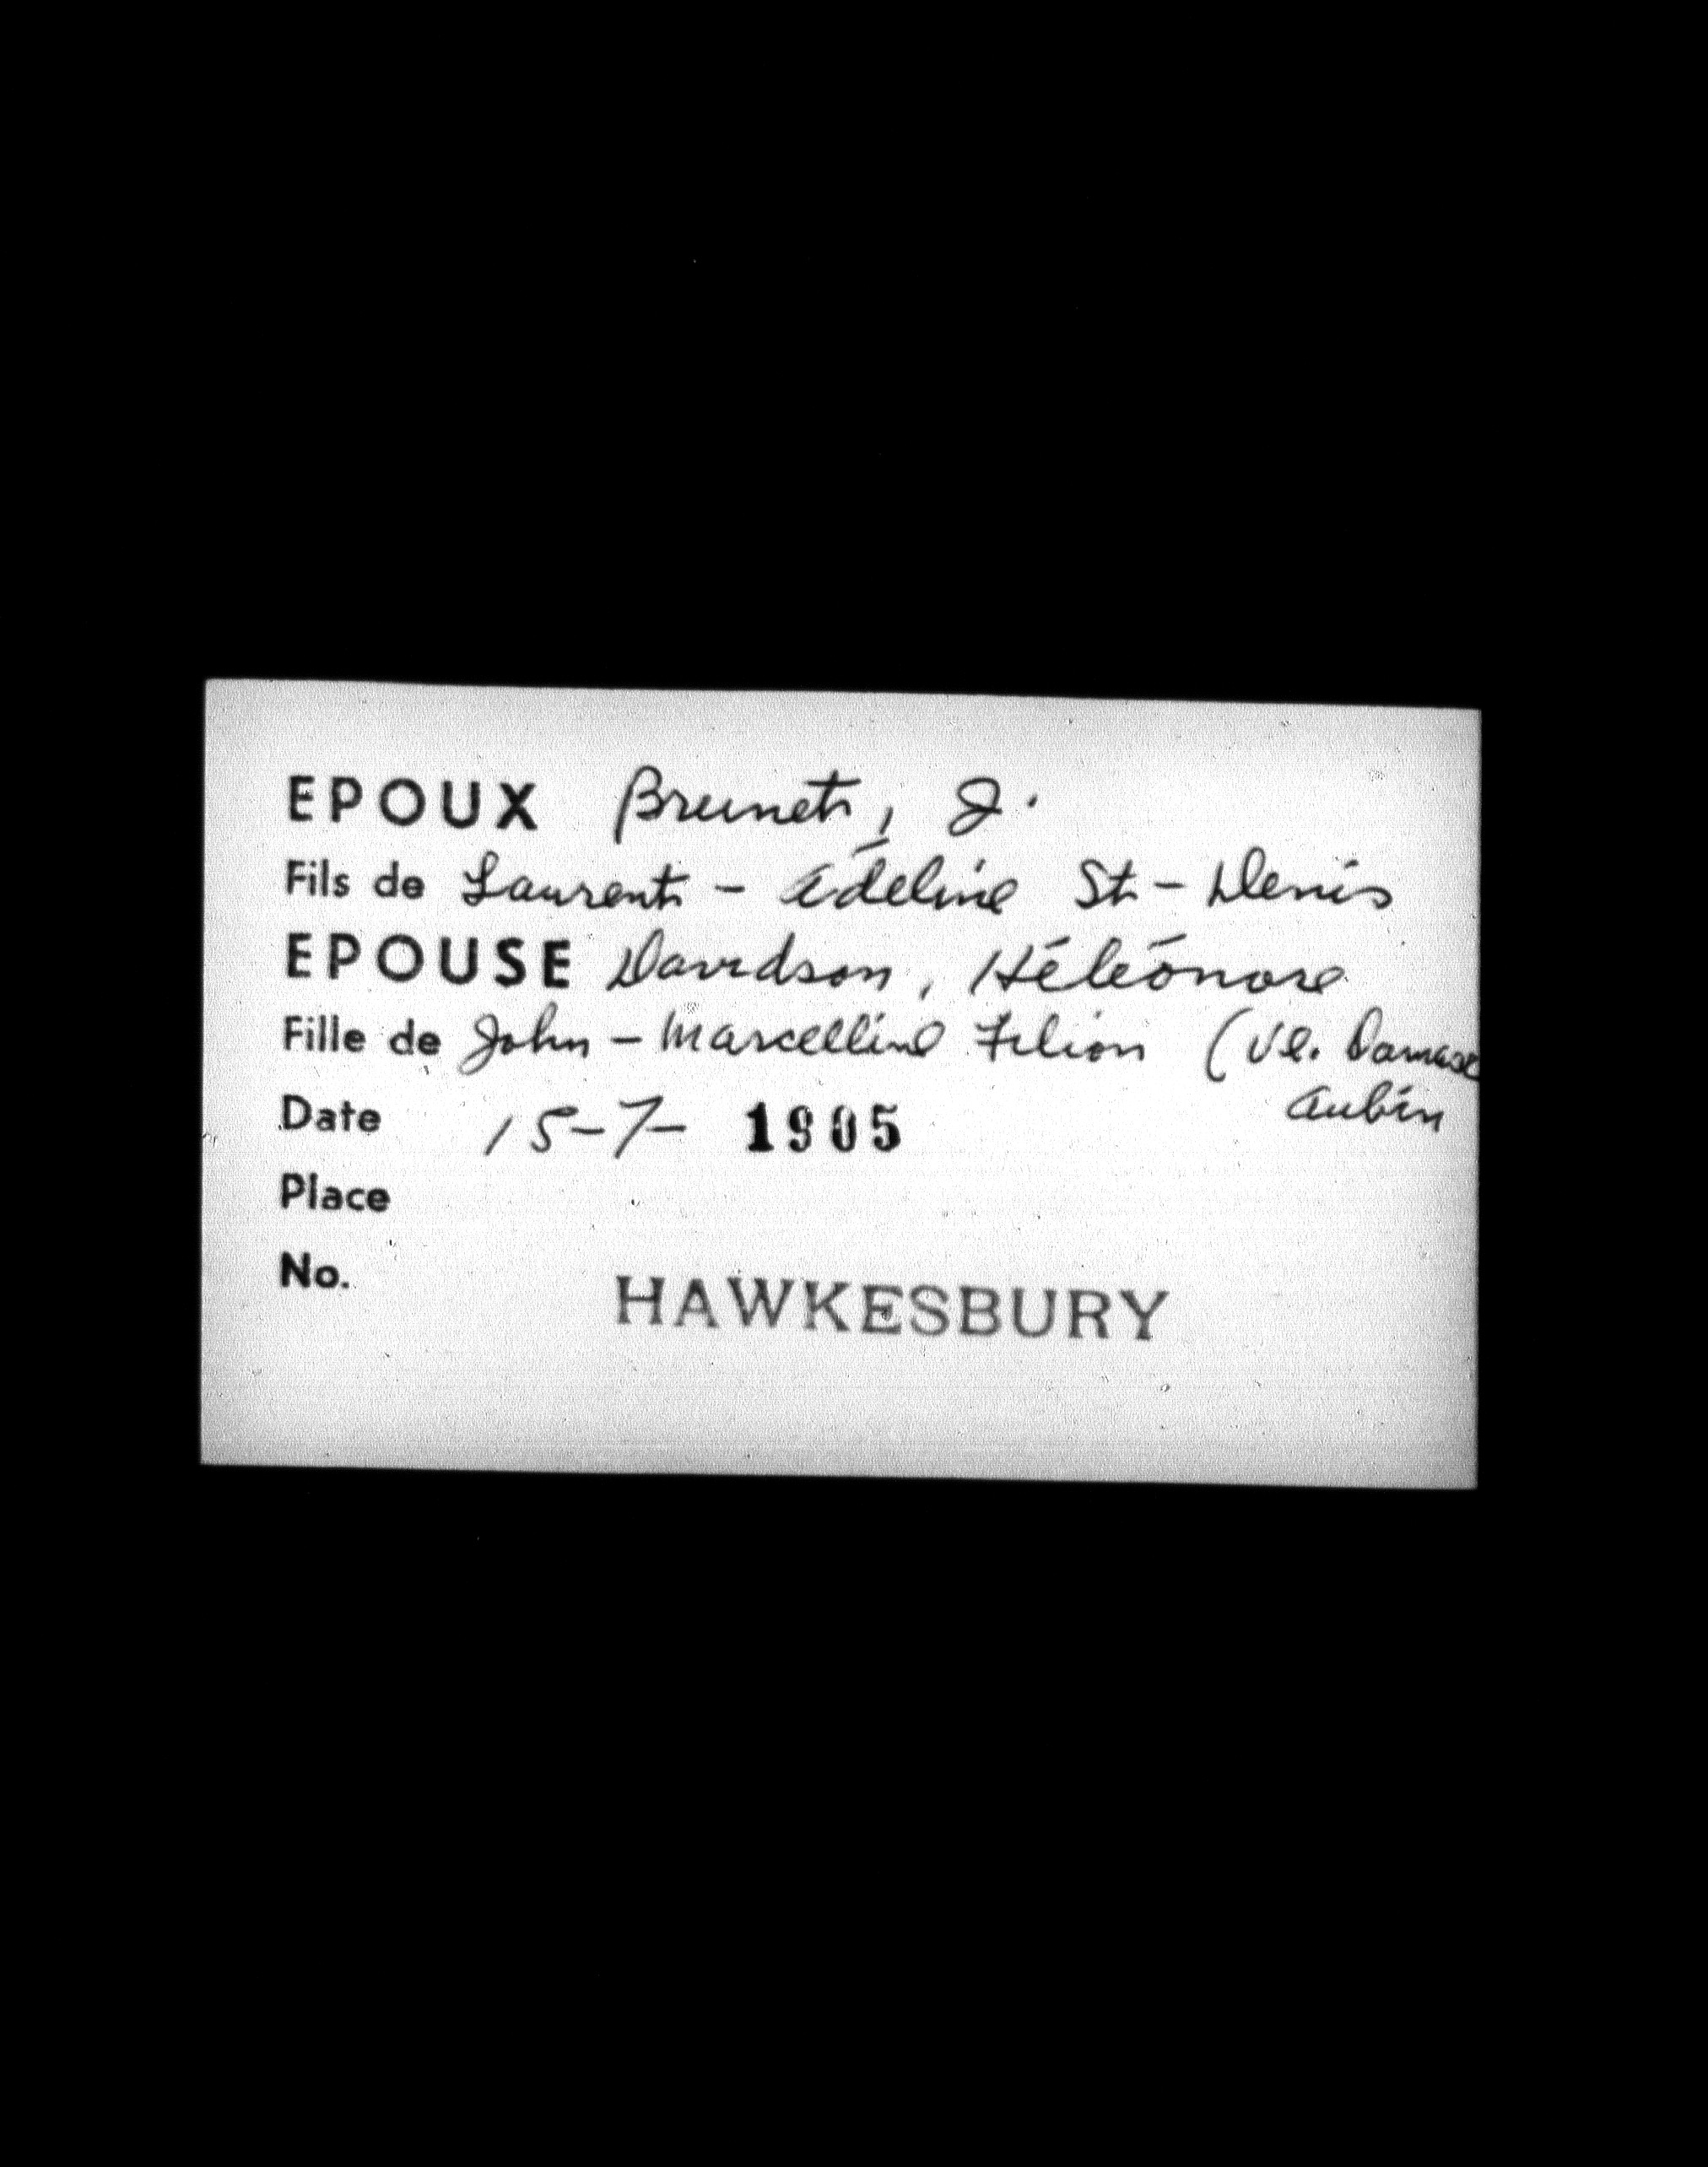 EPOUX Brunet, J.
Fils de Laurent - Adéline St-Denis
EPOUSE Davidson, Héléonore
Fille de John - Marcelline Filion (Ve. Damase
Aubin
Date 15-7- 1905
Place
No.
HAWKESBURY